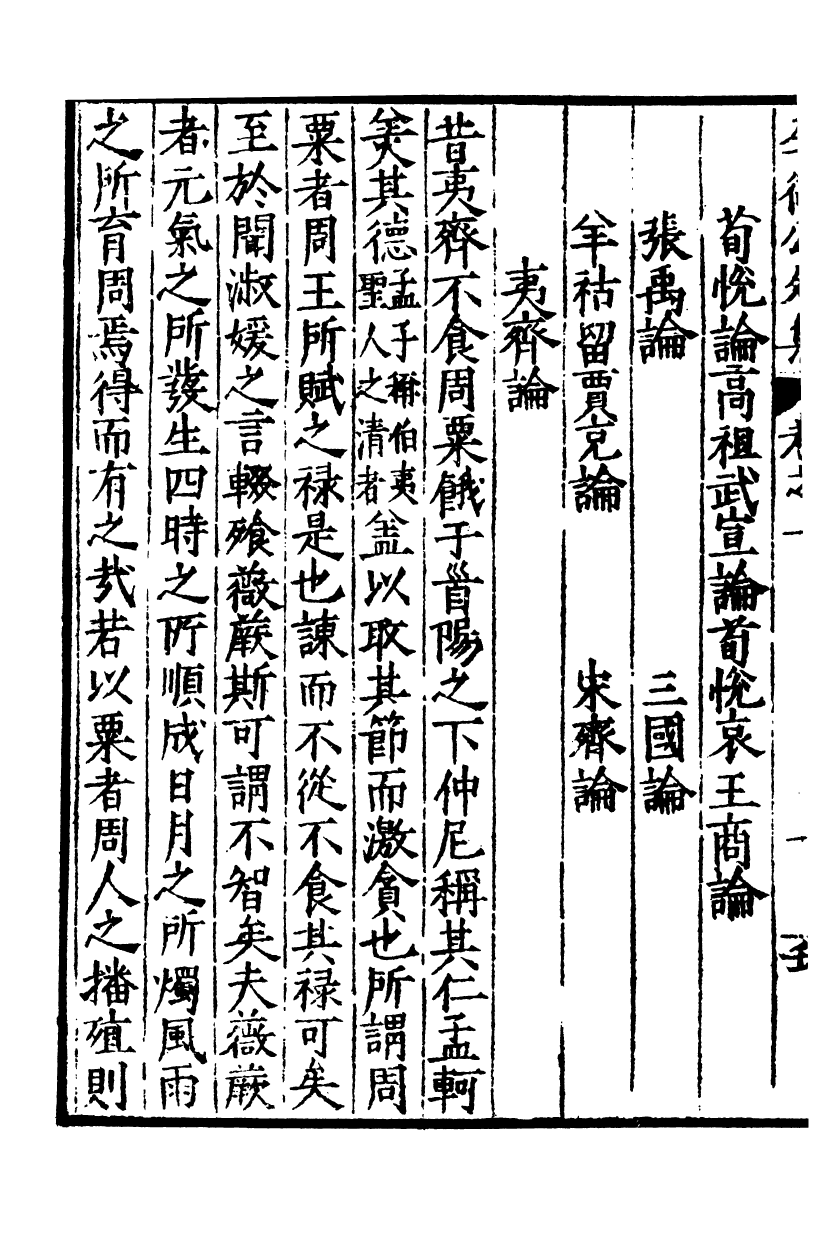 荀悅論高祖武宣論荀悅哀王商論
張禹論　三國論
羊祜留賈充論　宋齊論
夷齊論
昔夷齊不食周粟餓于首陽之下仲尼稱其仁孟軻
美其德孟子稱伯夷聖人之清者盖以取其節而激貪也所謂周
粟者周王所賦之禄是也諫而不從不食其禄可矣
至於聞淑媛之言輟飱薇蕨斯可謂不智矣夫薇蕨
者元氣之所發生四時之所順成日月之所燭風雨
之所育周焉得而有之㢤若以粟者周人之播殖則